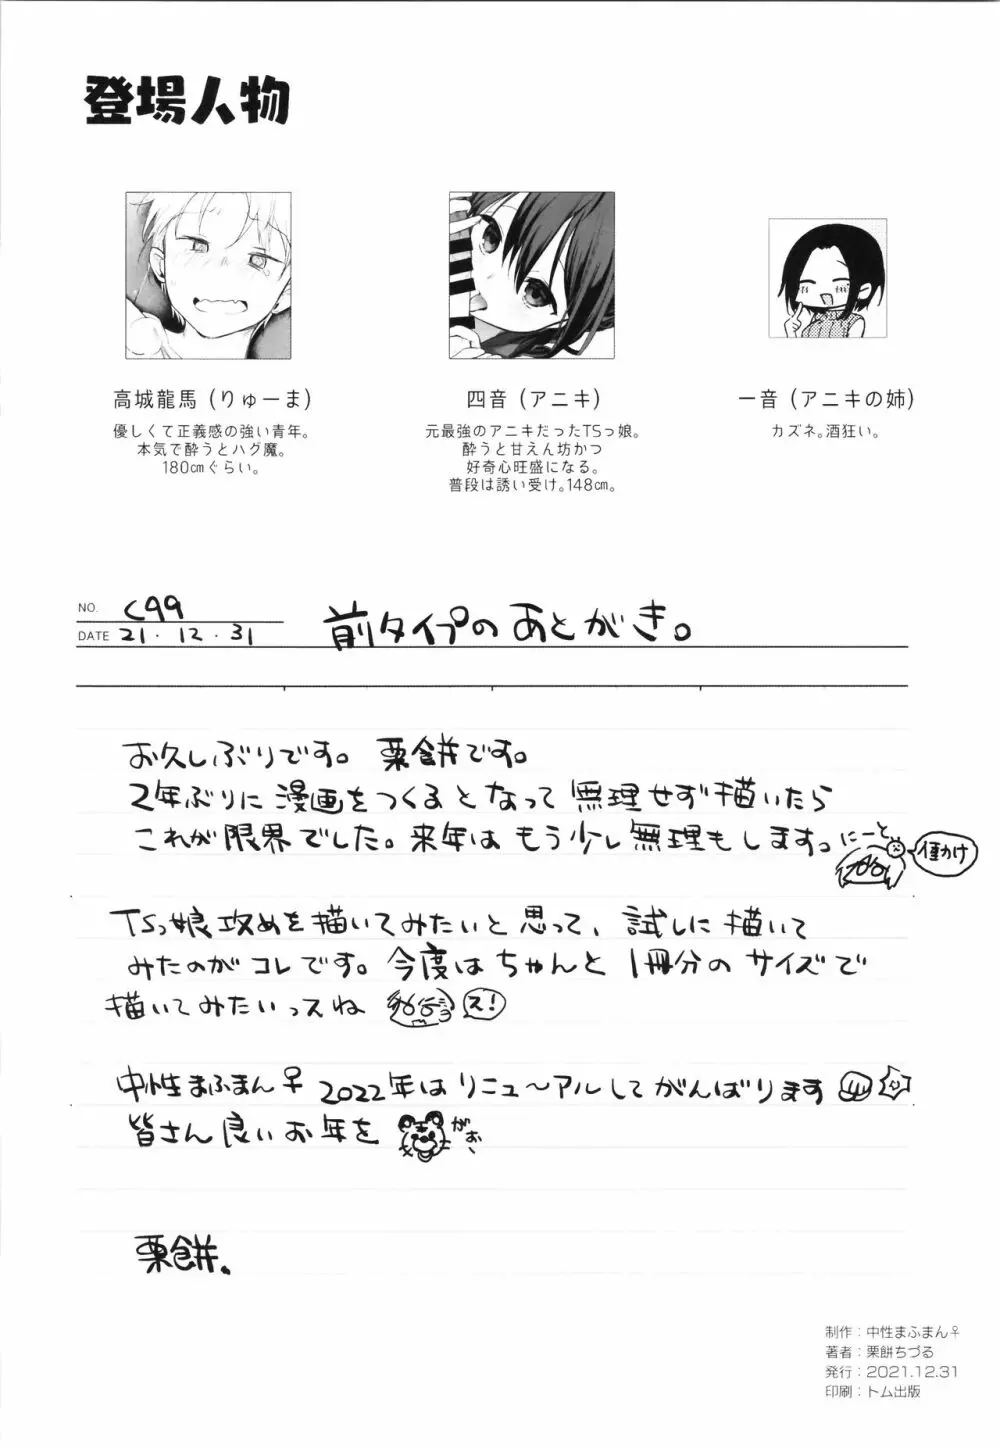 登場人物
高城龍馬(りゅーま)
優しくて正義感の強い青年。
本気で酔うとハグ魔。
180㎝ぐらい。
四音(アニキ)
元最強のアニキだったTSっ娘。
酔うと甘えん坊かつ
好奇心旺盛になる。
普段は誘い受け。148㎝。
一音(アニキの姉)
カズネ。酒狂い。
NO. C99
DATE 21.12.31
前タイプのあとがき。
お久しぶりです。栗餅です。
2年ぶりに漫画をつくるとなって無理せず描いたら
これが限界でした。来年はもう少し無理もします。にーと
働かけ
TSっ娘攻めを描いてみたいと思って、試しに描いて
みたのがコレです。今度はちゃんと1冊分のサイズで
描いてみたいっスね
ス!
中性まふまん♀ 2022年はリニュ〜アルしてがんばります
皆さん良いお年を
がお、
栗餅、
制作:中性まふまん♀
著者:栗餅ちづる
発行:2021.12.31
印刷:トム出版